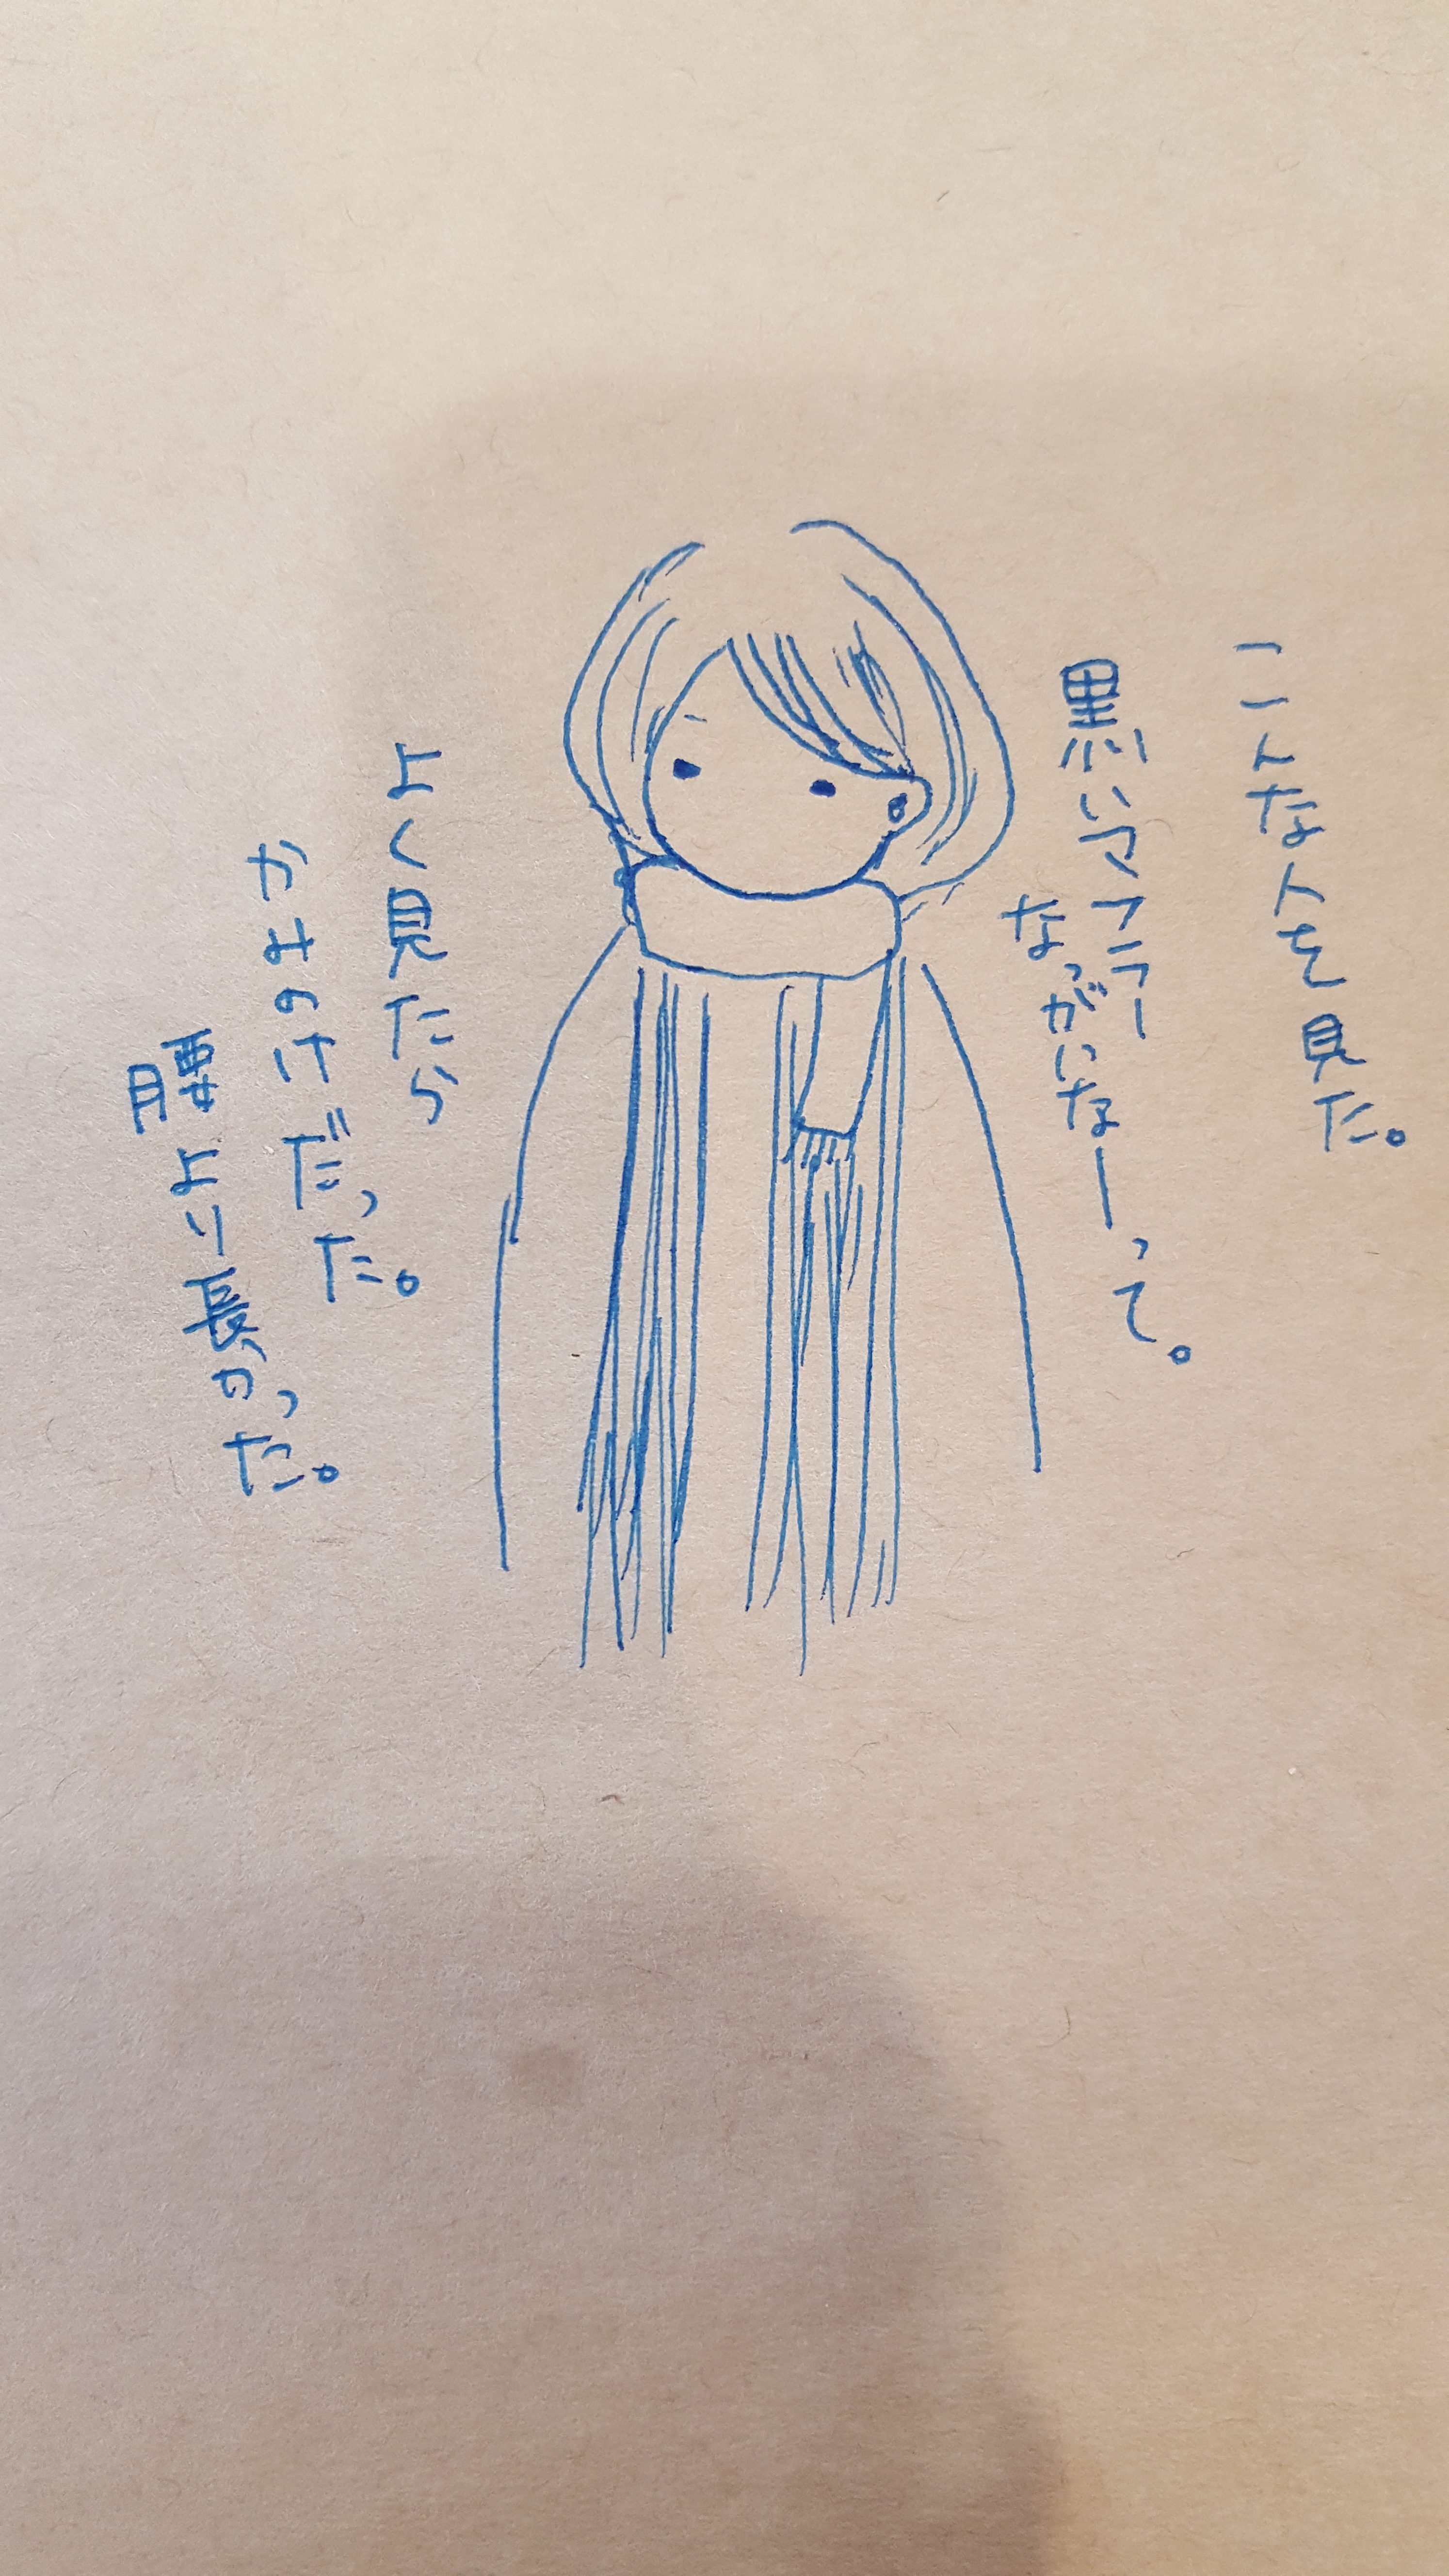 こんな人を見た。
黒いマフラー
なっがいなーって。
よく見たら
かみのけだった。
腰より長かった。